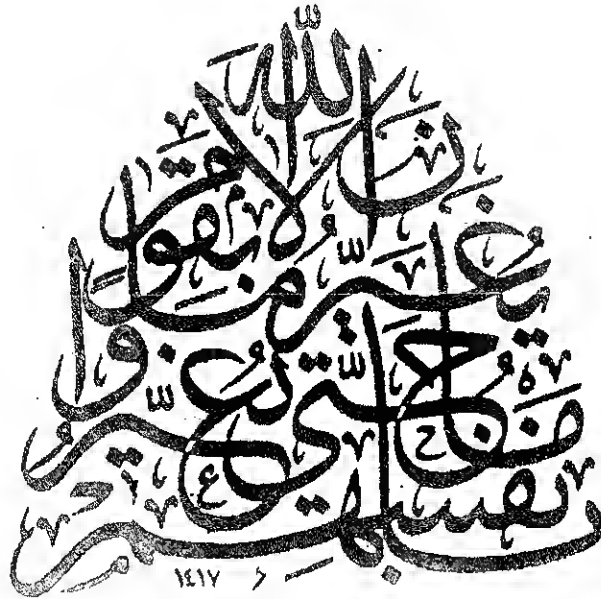 إن الله لا يغير ما بقوم حتى يغيروا ما بأنفسهم
١٤١٧